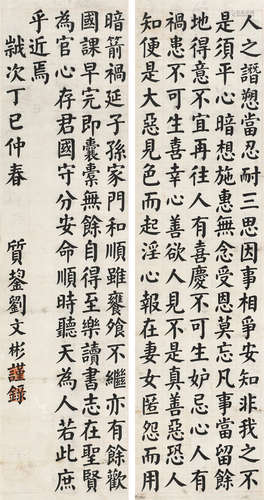 人之譖愬當忍耐三思因事相爭安知非我之不
是須平心暗想施惠無念受恩莫忘凡事當留餘
地得意不宜再往人有喜慶不可生妒忌心人有
禍患不可生喜幸心善欲人見不是真善惡恐人
知便是大惡見色而起淫心報在妻女匿怨而用
暗箭禍延子孫家門和順雖饔飧不繼亦有餘歡
國課早完即囊橐無餘自得至樂讀書志在聖賢
為官心存君國守分安命順時聽天為人若此庶
乎近焉
歲次丁巳仲春 質 劉文彬謹錄